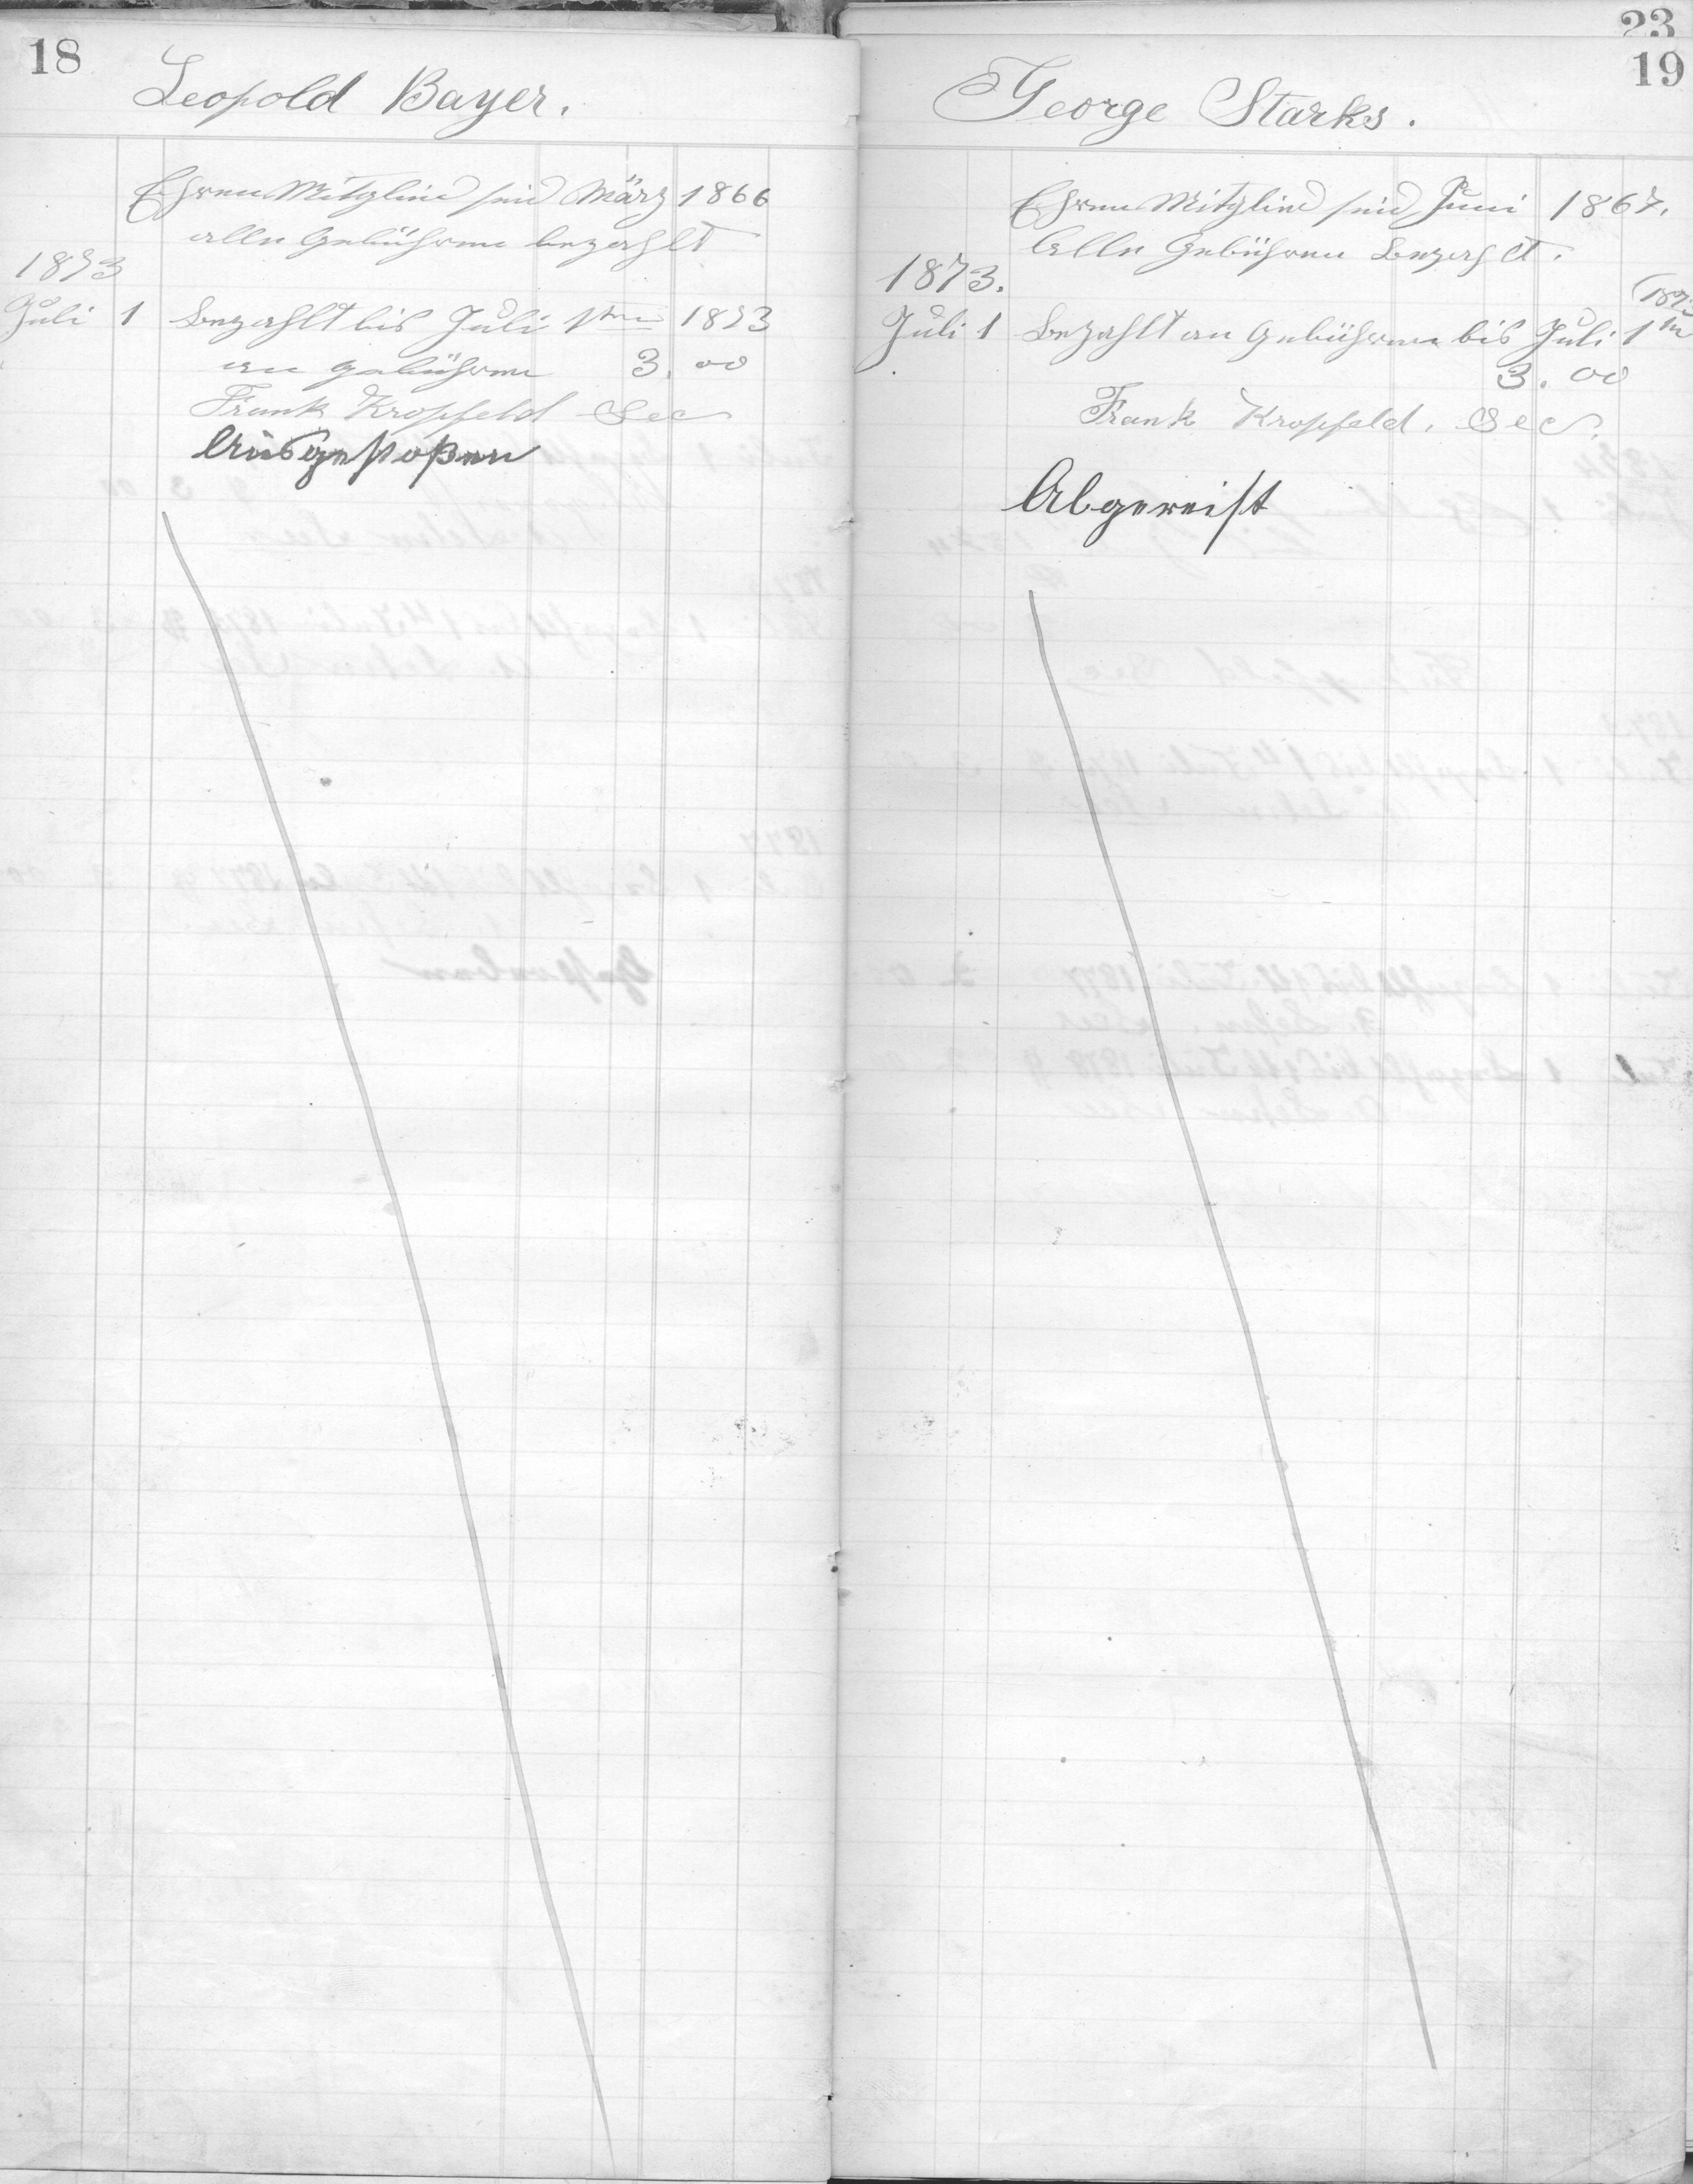 18
Leopold Bayer.
Ehren Mitglied seid März 1866
alle Gebühren bezahlt
1873
Juli 1 Bezahlt bis Juli 1ten 1873
an gebühren 3.00
Frank Kropfeld Sec
Ausgestoßen
23
19
George Starks.
Ehren Mitglied seid Juni 1867.
Alle Gebühren Bezahlt.
1873.
Juli 1 Bezahlt an Gebühren bis Juli 1ten (1873
3.00
Frank Kropfeld. Sec.
Abgereist